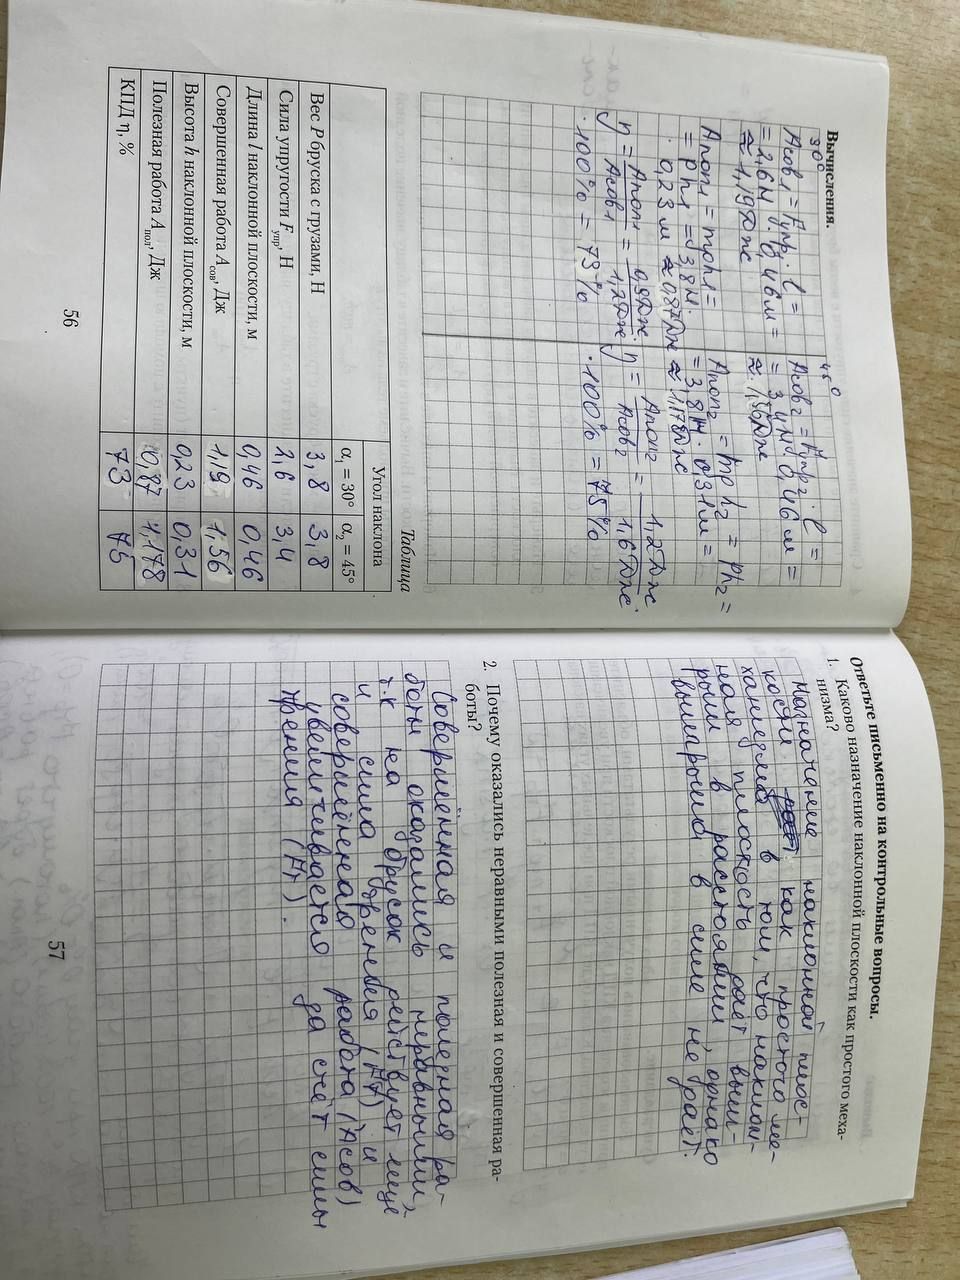 Вычисления.
30°
Aсов1 = Fупр · l =
= 2,6 Н · 0,46 м =
≈ 1,19 Дж
Aпол1 = mgh1 =
= Ph1 = 3,8 Н ·
· 0,23 м ≈ 0,87 Дж
η = Aпол1 / Aсов1 = 0,9 Дж / 1,2 Дж ·
· 100% = 73%
45°
Aсов2 = Fупр2 · l =
= 3,4 Н · 0,46 м =
≈ 1,56 Дж
Aпол2 = mgh2 = Ph2 =
= 3,8 Н · 0,31 м =
≈ 1,178 Дж
η = Aпол2 / Aсов2 = 1,2 Дж / 1,6 Дж ·
· 100% = 75%
Таблица
Угол наклона
α1 = 30° α2 = 45°
Вес P бруска с грузами, Н 3,8 3,8
Сила упругости Fупр, Н 2,6 3,4
Длина l наклонной плоскости, м 0,46 0,46
Совершенная работа Aсов, Дж 1,19 1,56
Высота h наклонной плоскости, м 0,23 0,31
Полезная работа Aпол, Дж 0,87 1,178
КПД η, % 73 75
56
Ответьте письменно на контрольные вопросы.
1. Каково назначение наклонной плоскости как простого меха-
низма?
Назначение наклонной плос-
кости как простого ме-
ханизма в том, что наклон-
ная плоскость даёт выиг-
рыш в расстоянии, однако
выигрыша в силе не даёт.
2. Почему оказались неравными полезная и совершенная ра-
боты?
Совершённая и полезная ра-
боты оказались неравными,
т.к на брусок действует ещё
и сила трения (Fт) и
совершённая работа (Aсов)
увеличивается за счёт силы
трения (Fт).
57